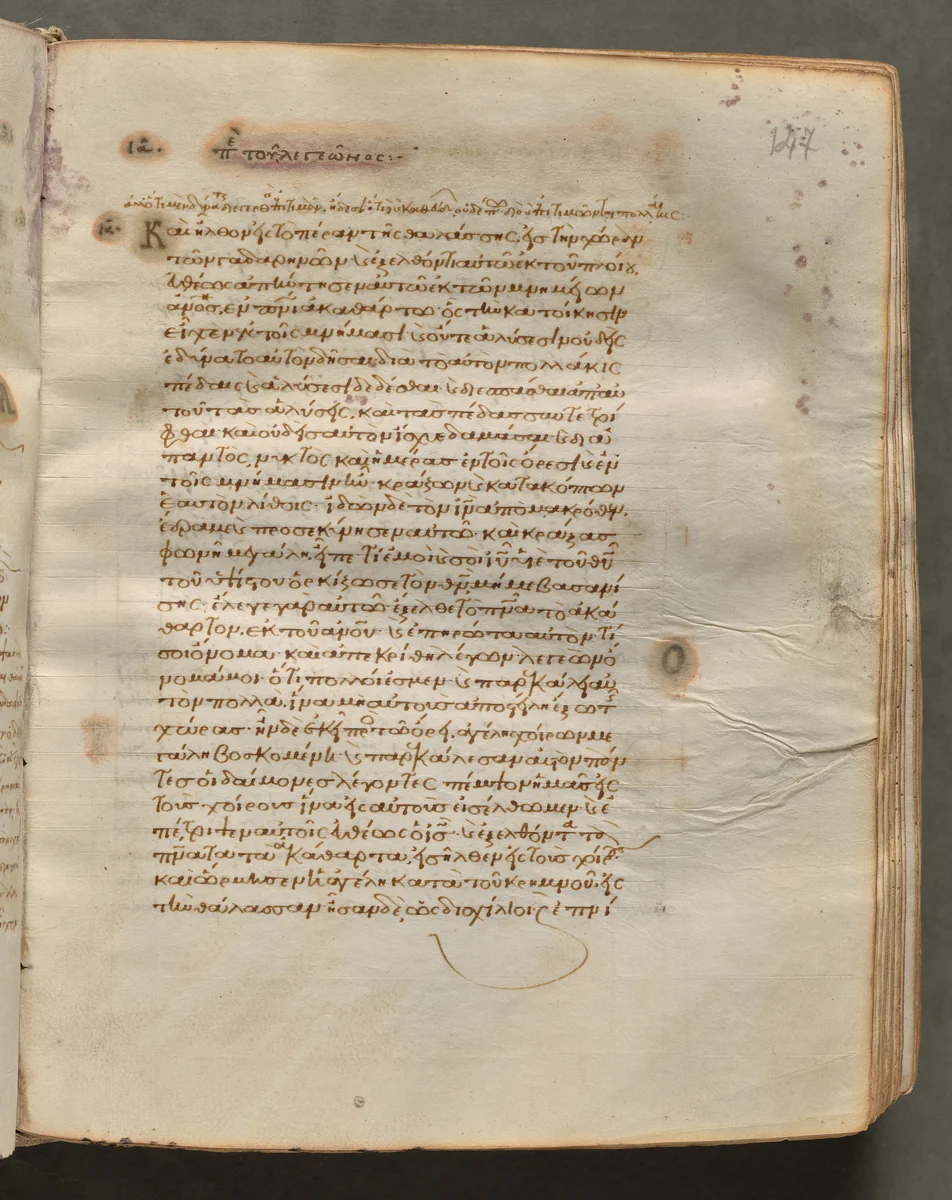 ια. περὶ τοῦ λεγεῶνος:-
ια. Καὶ ἦλθον εἰς τὸ πέραν τῆς θαλάσσης, εἰς τὴν χώραν
τῶν γαδαρηνῶν καὶ ἐξελθόντι αὐτῶ ἐκ τοῦ πλοίου,
εὐθέως ἀπήντησεν αὐτῶ ἐκ τῶν μνημείων
ἄνος, ἐν πνι ἀκαθάρτω· ὃς τὴν κατοίκησιν
εἶχεν ἐν τοῖς μνήμασι· καὶ οὔτε ἁλύσεσιν οὐδεὶς
ἐδύνατο αὐτὸν δῆσαι· διὰ τὸ αὐτὸν πολλάκις
πέδαις καὶ ἁλύσεσι δεδέσθαι· καὶ διεσπάσθαι ὑπ' αὐ
τοῦ τὰς ἁλύσεις, καὶ τὰς πέδας συντετρί
φθαι· καὶ οὐδεὶς αὐτὸν ἴσχυε δαμάσαι· καὶ δια
παντὸς, νυκτὸς καὶ ἡμέρας ἐν τοῖς ὄρεσι καὶ ἐν
τοῖς μνήμασιν ἦν· κράζων καὶ κατακόπτων
ἑαυτὸν λίθοις· ἰδὼν δὲ τὸν ιν ἀπὸ μακρόθεν,
ἔδραμε καὶ προσεκύνησεν αὐτῶ· καὶ κράξας
φωνῆ μεγάλη, εἶπε· τί ἐμοὶ καὶ σοὶ ιυ υἱὲ τοῦ θυ
τοῦ ὑψίστου ὁρκίζω σε τὸν θν, μή με βασανί
σης· ἔλεγε γὰρ αὐτῶ· ἔξελθε τὸ πνα τὸ ἀκά
θαρτον, ἐκ τοῦ ανου· καὶ ἐπηρώτα αὐτὸν τί
σοι ὄνομα· καὶ ἀπεκρίθη λέγων· λεγεὼν ὄ
νομά μοι· ὅτι πολλοί ἐσμεν· καὶ παρεκάλει αὐ
τὸν πολλὰ, ἵνα μὴ αὐτοὺς ἀποστείλη ἔξω τῆς
χώρας· ἦν δὲ ἐκεῖ πρὸς τῶ ὄρει, ἀγέλη χοίρων με
γάλη βοσκομένη· καὶ παρεκάλεσαν αὐτὸν πάν
τες οἱ δαίμονες λέγοντες· πέμψον ἡμᾶς εἰς
τοὺς χοίρους ἵνα εἰς αὐτοὺς εἰσέλθωμεν· καὶ ἐ
πέτρεψεν αὐτοῖς εὐθέως ὁ ις· καὶ ἐξελθόντα τὰ
πνατα τὰ ἀκάθαρτα, εἰσῆλθεν εἰς τοὺς χοίρους·
καὶ ὥρμησεν ἡ ἀγέλη κατὰ τοῦ κρημνοῦ, εἰς
τὴν θάλασσαν· ἦσαν δὲ ὡς δισχίλιοι· καὶ ἐπνί